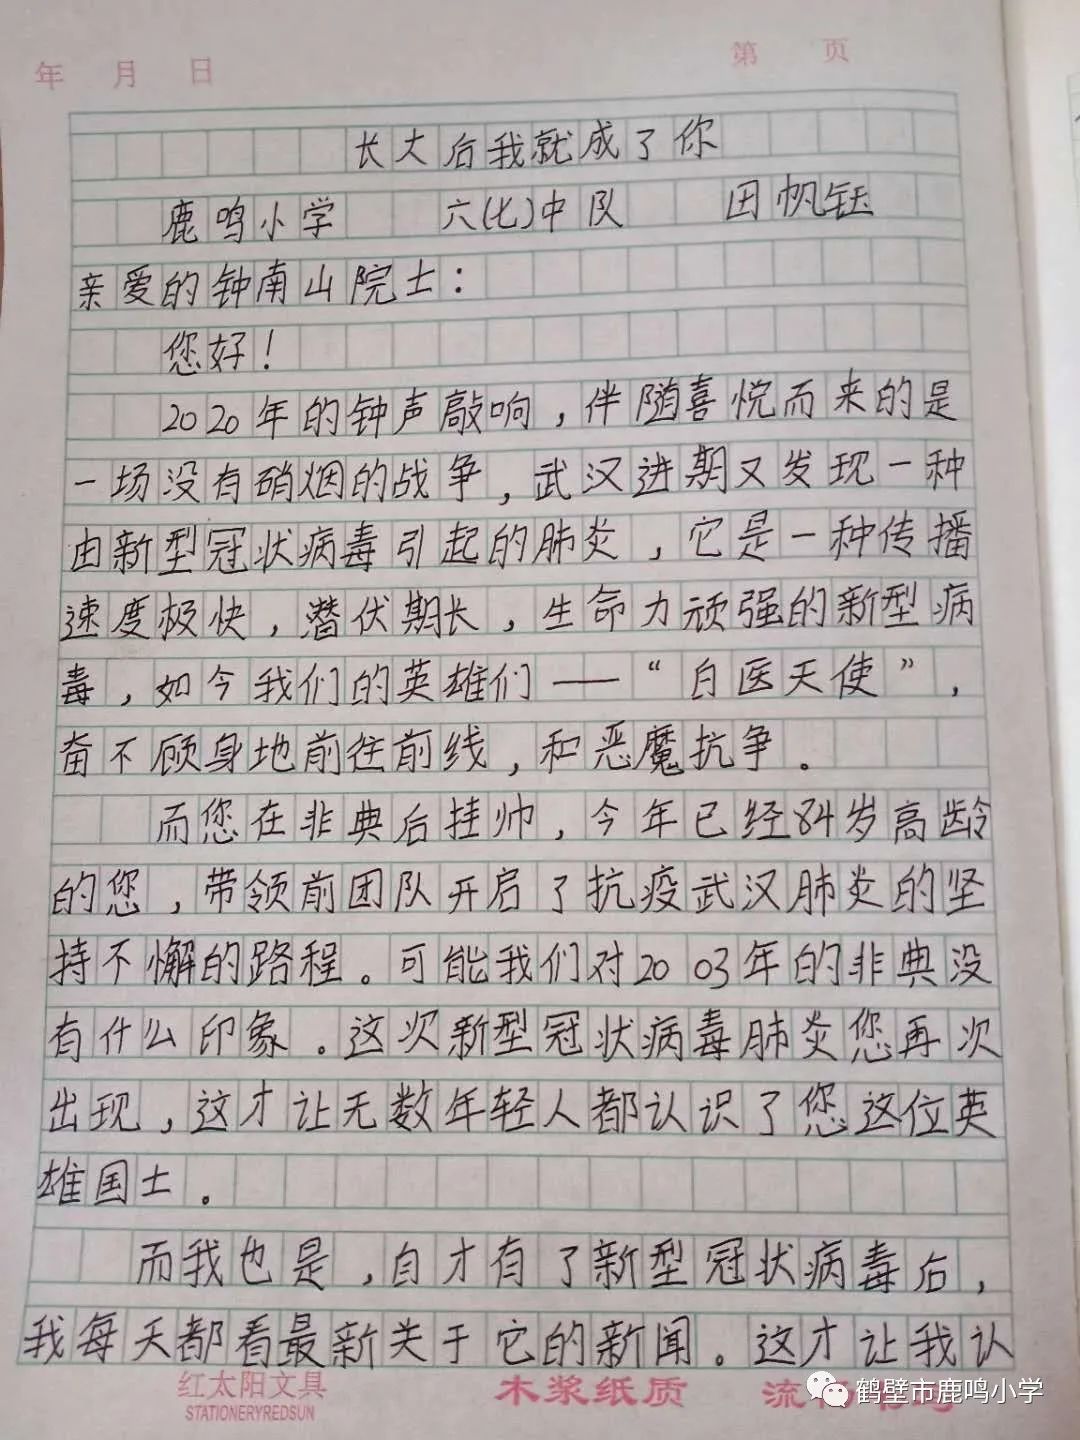 年 月 日 第 页
长大后我就成了你
鹿鸣小学 六(七)中队 田帆钰
亲爱的钟南山院士：
您好！
2020年的钟声敲响，伴随喜悦而来的是
一场没有硝烟的战争，武汉进期又发现一种
由新型冠状病毒引起的肺炎，它是一种传播
速度极快，潜伏期长，生命力顽强的新型病
毒，如今我们的英雄们——“白医天使”，
奋不顾身地前往前线，和恶魔抗争。
而您在非典后挂帅，今年已经84岁高龄
的您，带领前团队开启了抗疫武汉肺炎的坚
持不懈的路程。可能我们对2003年的非典没
有什么印象。这次新型冠状病毒肺炎您再次
出现，这才让无数年轻人都认识了您这位英
雄国士。
而我也是，自才有了新型冠状病毒后，
我每天都看最新关于它的新闻。这才让我认
红太阳文具 木浆纸质 流
STATIONERYREDSUN
鹤壁市鹿鸣小学